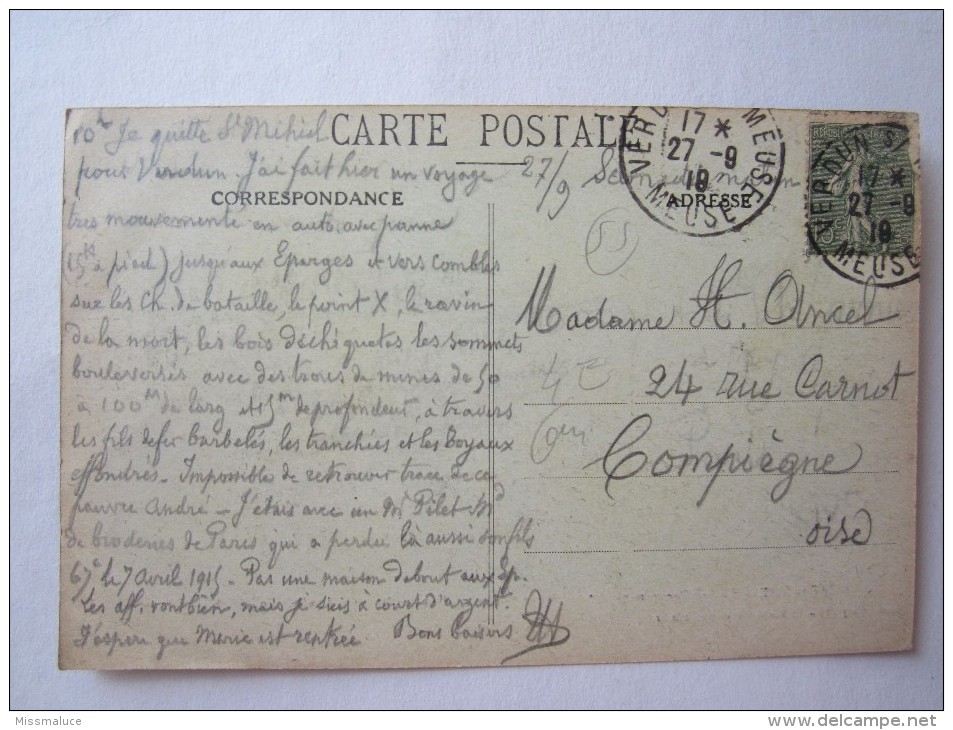 CARTE POSTALE
CORRESPONDANCE
ADRESSE
10h Je quitte St Mihiel
pour Verdun. J'ai fait hier un voyage
27/9
très mouvementé en auto avec panne
(15K à pied) jusqu'aux Eparges et vers Combles
sur les Ch. de bataille, le point X, le ravin
de la mort, les bois déchiquetés les sommets
bouleversés avec des trous de mines de 50
à 100M de larg et 15m de profondeur, à travers
les fils de fer barbelés, les tranchées et les boyaux
effondrés. Impossible de retrouver trace de ce
pauvre André - J'étais avec un Mr Pilet Md
de broderies de Paris qui a perdu là aussi son fils
67e le 7 avril 1915. Pas une maison debout aux Ep.
Les aff. vont bien, mais je suis à court d'argent.
J'espère que Marie est rentrée Bons baisers
Madame H. Ancel
24 rue Carnot
Compiègne
oise
17 *
27 -9
19
MEUSE
VERDUN S/ MEUSE
17 *
27 -9
19
MEUSE
Missmaluce
www.delcampe.net